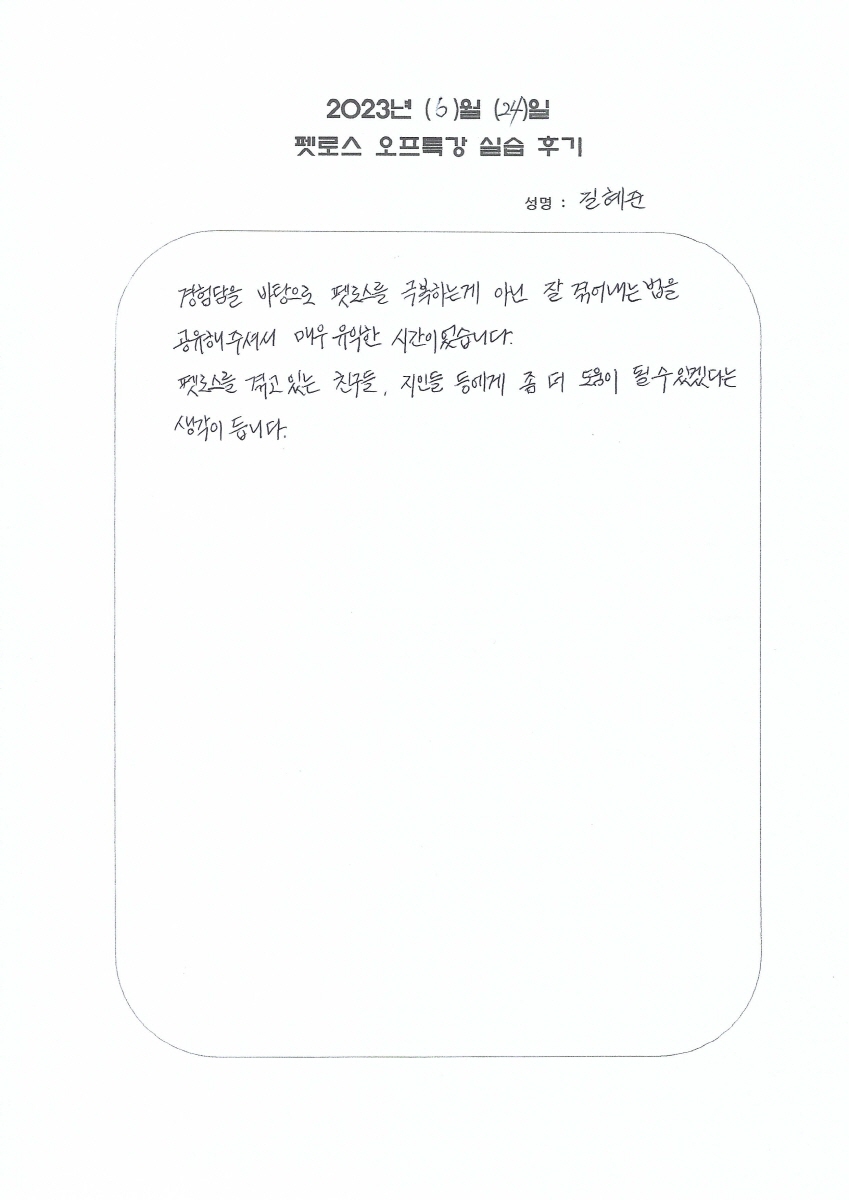 2023년 (6)월 (24)일
펫로스 오프특강 실습 후기
성명 : 길혜
경험담을 바탕으로 펫로스를 극복하는게 아닌 잘 겪어내는 법을
공유해주셔서 매우 유익한 시간이었습니다.
펫로스를 겪고 있는 친구들, 지인들 등에게 좀 더 도움이 될 수 있겠다는
생각이 듭니다.